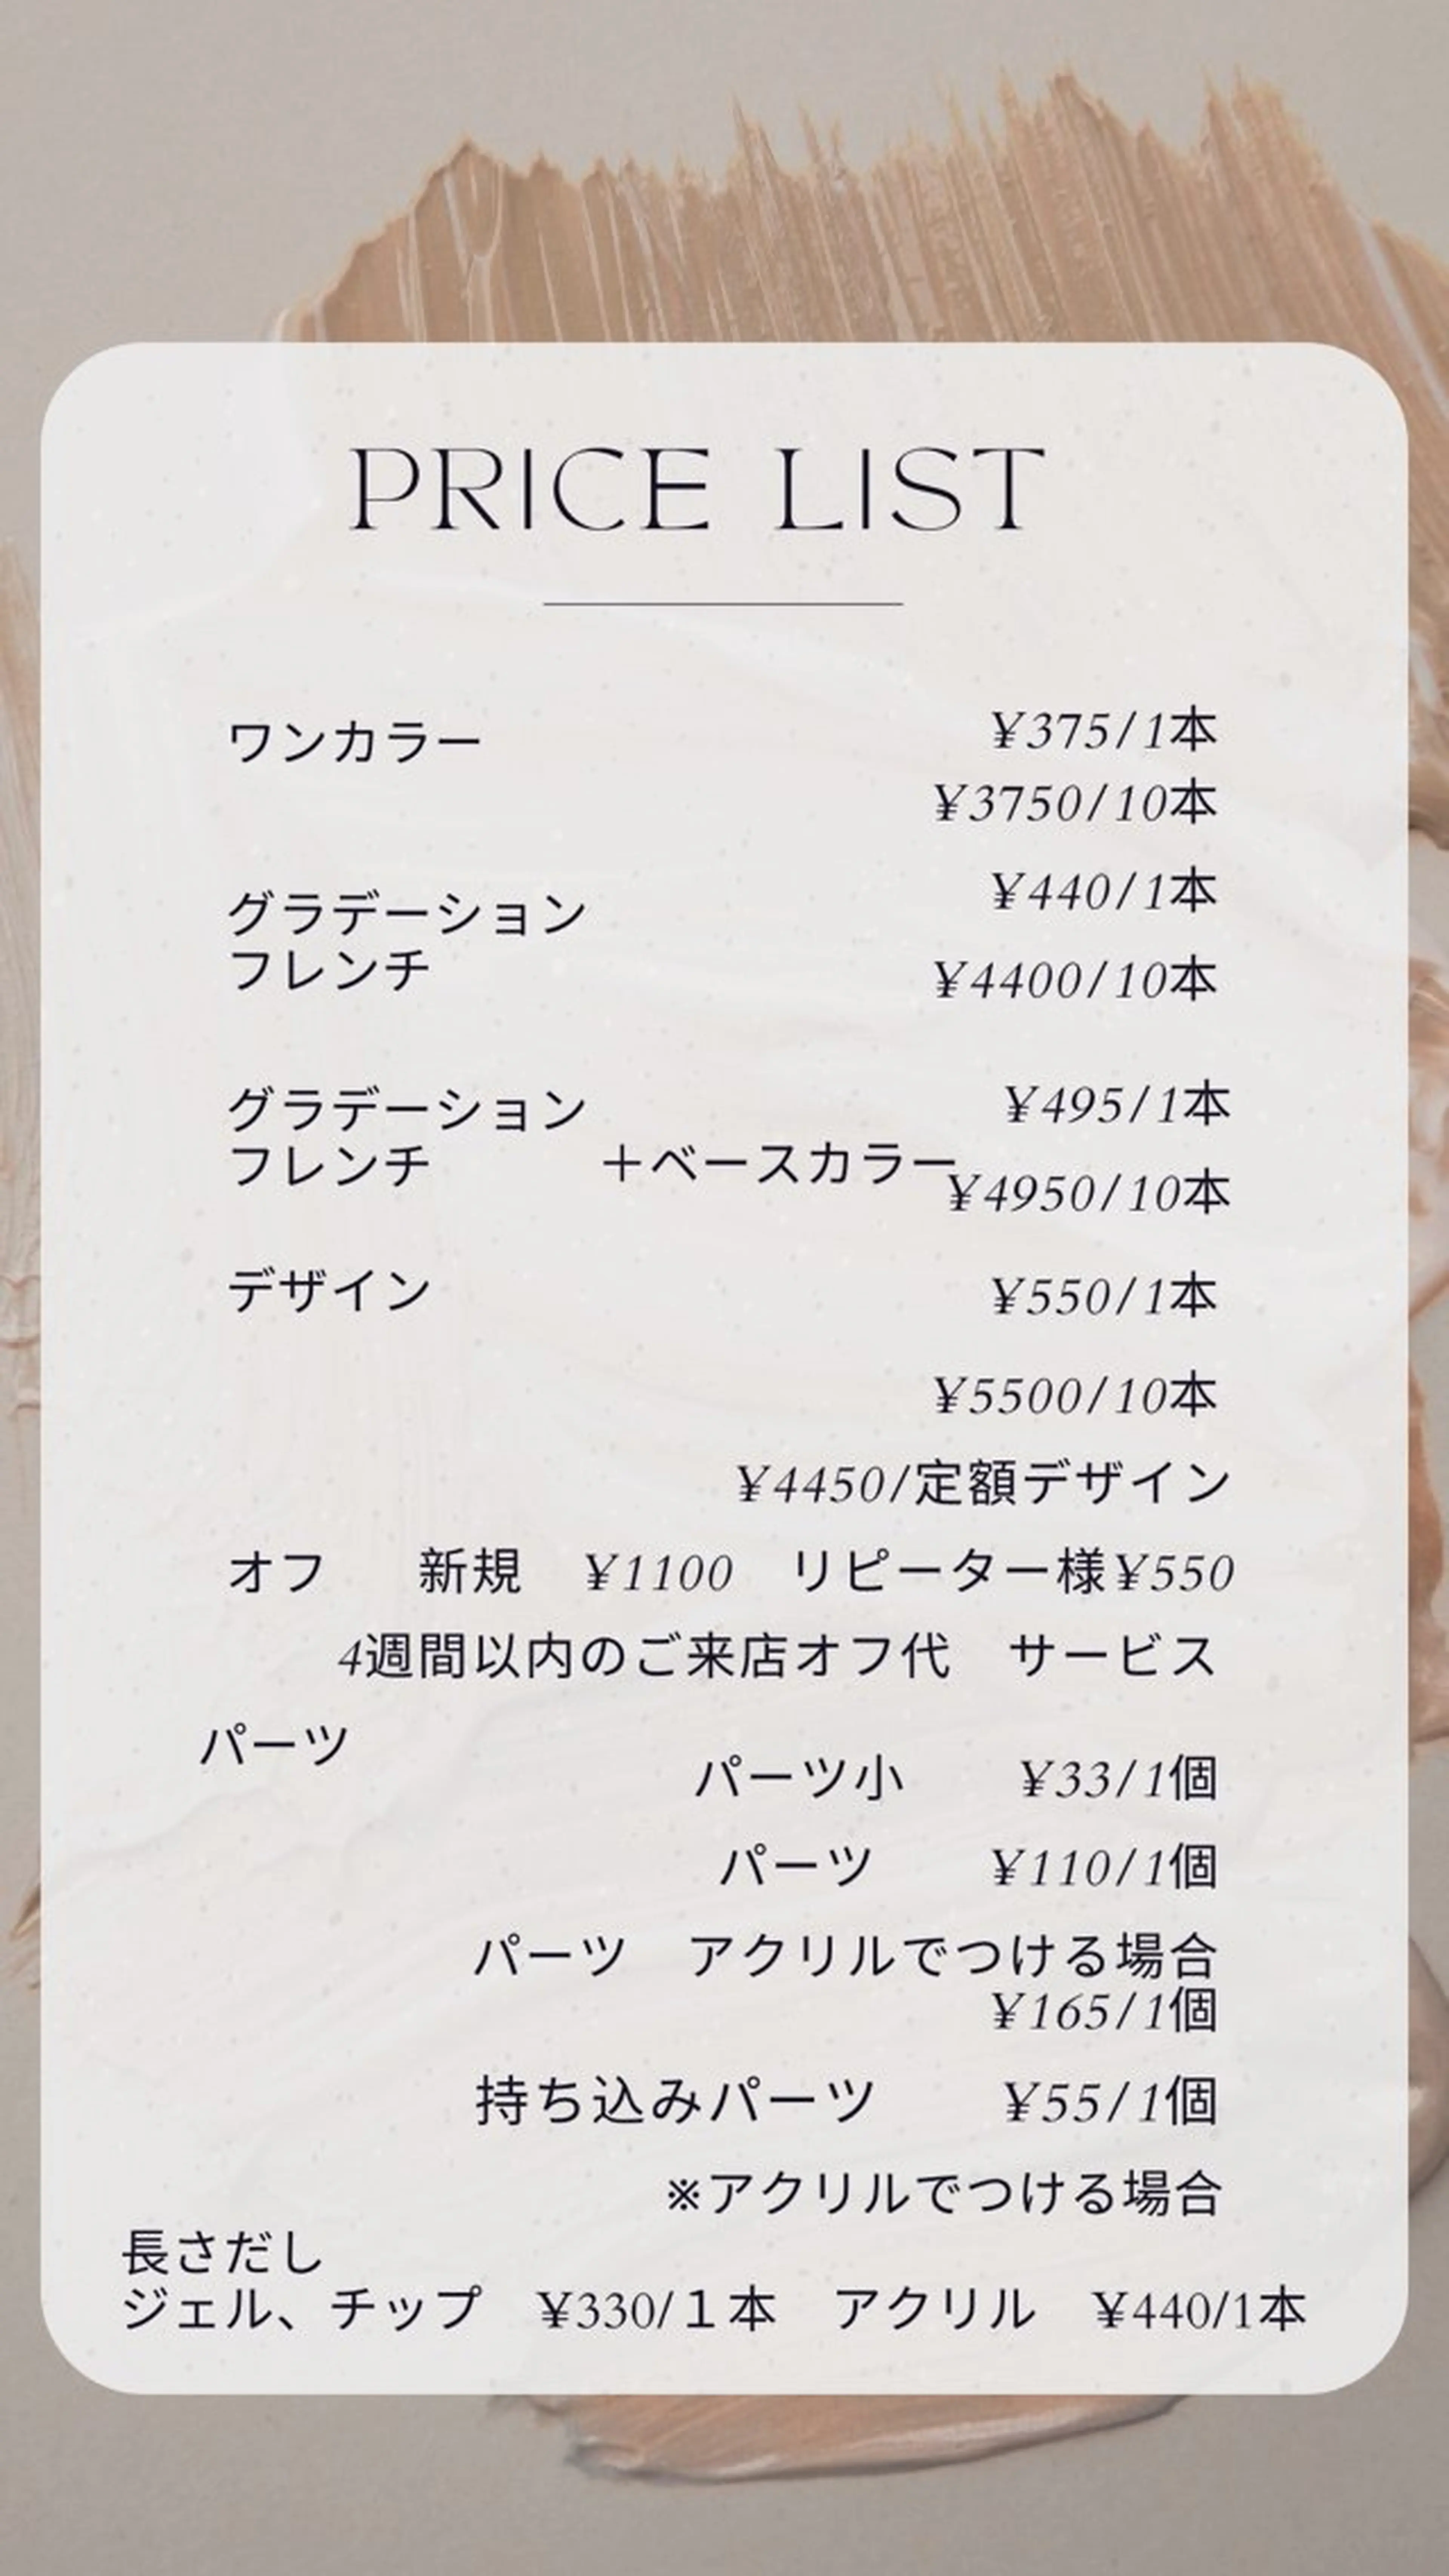 PRICE LIST
ワンカラー ¥375/1本
¥3750/10本
グラデーション ¥440/1本
フレンチ ¥4400/10本
グラデーション ¥495/1本
フレンチ ＋ベースカラー ¥4950/10本
デザイン ¥550/1本
¥5500/10本
¥4450/定額デザイン
オフ 新規 ¥1100 リピーター様¥550
4週間以内のご来店オフ代 サービス
パーツ
パーツ小 ¥33/1個
パーツ ¥110/1個
パーツ アクリルでつける場合
¥165/1個
持ち込みパーツ ¥55/1個
※アクリルでつける場合
長さだし
ジェル、チップ ¥330/１本 アクリル ¥440/1本